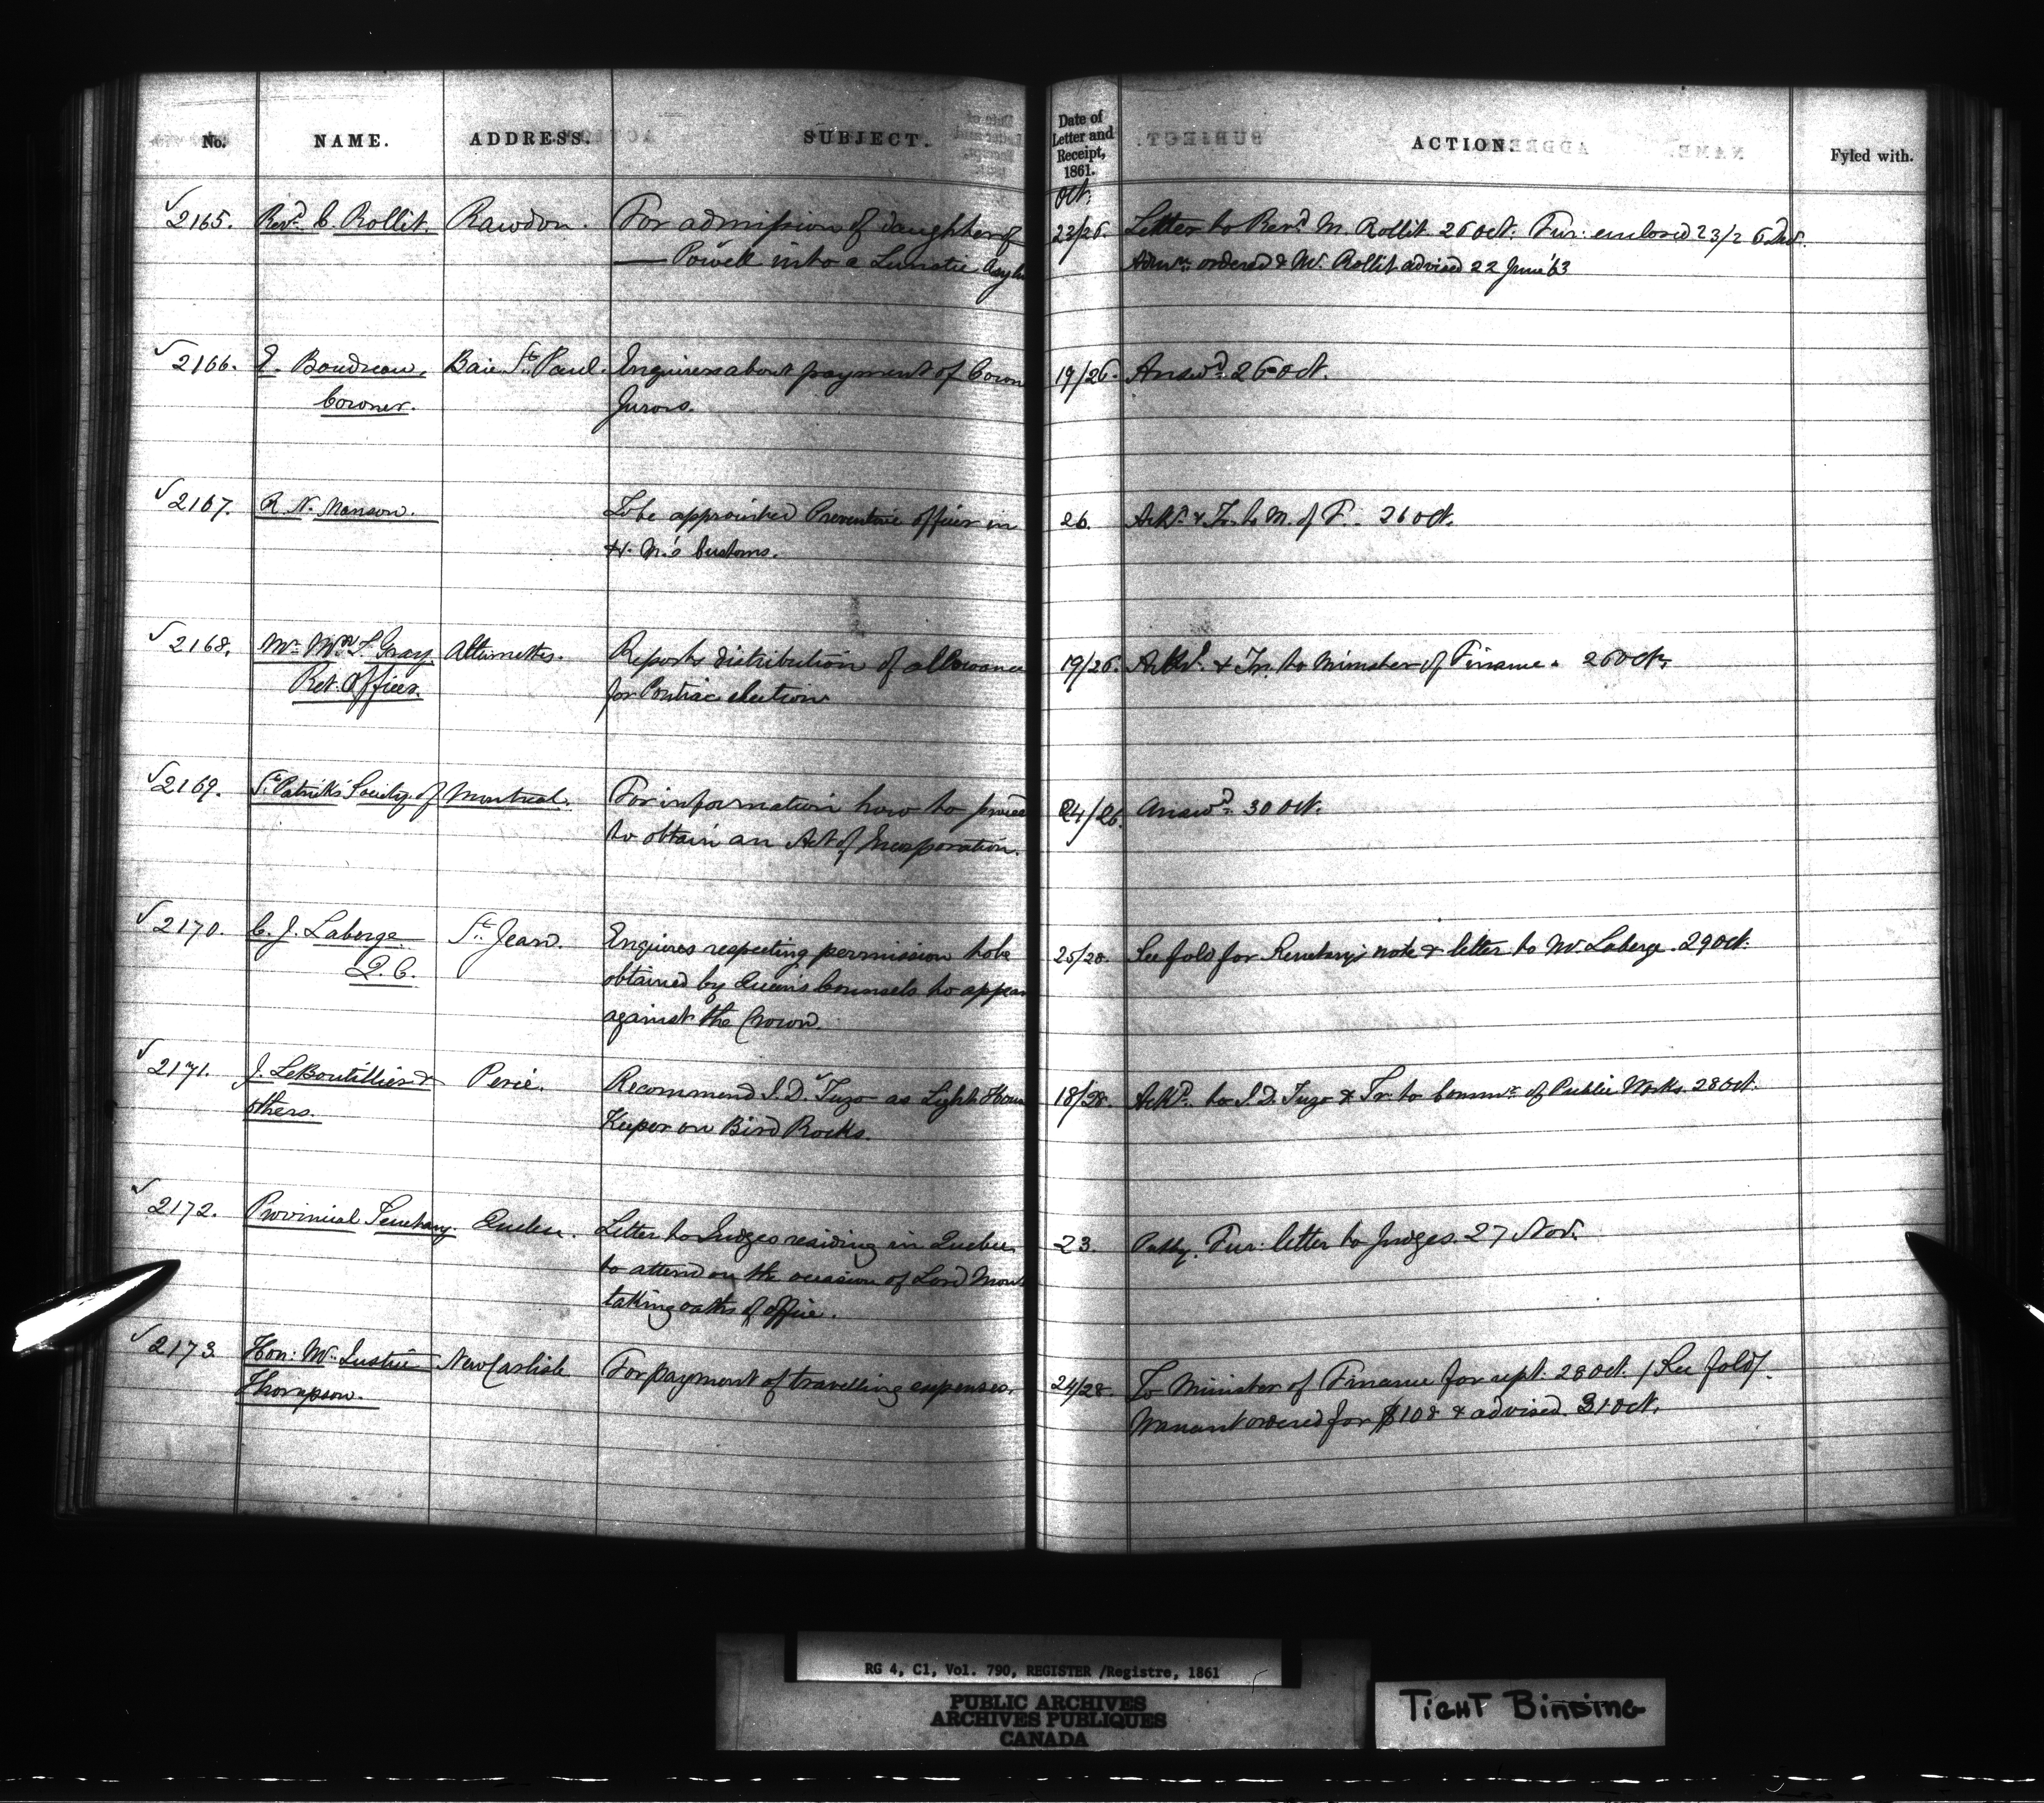 No. NAME. ADDRESS. SUBJECT. Date of Letter and Receipt, 1861. ACTION. Fyled with.
Oct.
2165. Revd. C. Rollit. Rawdon. For admission of daughter of 23/26. Letter to Revd. Mr. Rollit 26 Oct. Fur: enclosed 23/26 Oct.
— Powell into a Lunatic Asylu Admn. ordered & Mr. Rollit advised 22 June '63
2166. E. Boudreau, Baie St. Paul. Enquires about payment of Coron 19/26. Answd. 26 Oct.
Coroner. Jurors.
2167. R. N. Manson. To be appointed Preventive officer in 26. Ackd. & Tr. to M. of F. 26 Oct.
H. M.'s Customs.
2168. Mr. Wm. F. Gray Allumettes. Reports distribution of allowance 19/26. Ackd. & Tr. to Minister of Finance. 26 Oct.
Ret. Officer. for Pontiac election
2169. St. Patrick's Society of Montreal. For information how to proceed 24/26. Answd. 30 Oct.
to obtain an Act of Incorporation.
2170. C. J. Laberge St. Jean. Enquires respecting permission to be 25/28. See fold for Secretary's note & letter to Mr. Laberge. 29 Oct.
Q. C. obtained by Queen's Counsels to appear
against the Crown
2171. J. LeBoutillier & Percé. Recommend J. D. Tuzo as Light House 18/28. Ackd. to J. D. Tuzo & Tr. to Commr. of Public Works. 28 Oct.
others. Keeper on Bird Rocks.
2172. Provincial Secretary. Quebec. Letter to Judges residing in Quebec 23. Fur: letter to Judges. 27 Nov.
to attend on the occasion of Lord Monk
taking oaths of office.
2173. Hon: Mr. Justice New Carlisle For payment of travelling expenses. 24/28. To Minister of Finance for rept. 28 Oct. / See fold /.
Thompson. Warrant ordered for $108 & advised. 31 Oct.
RG 4, C1, Vol. 790, REGISTER /Registre, 1861
PUBLIC ARCHIVES
ARCHIVES PUBLIQUES
CANADA
TIGHT BINDING